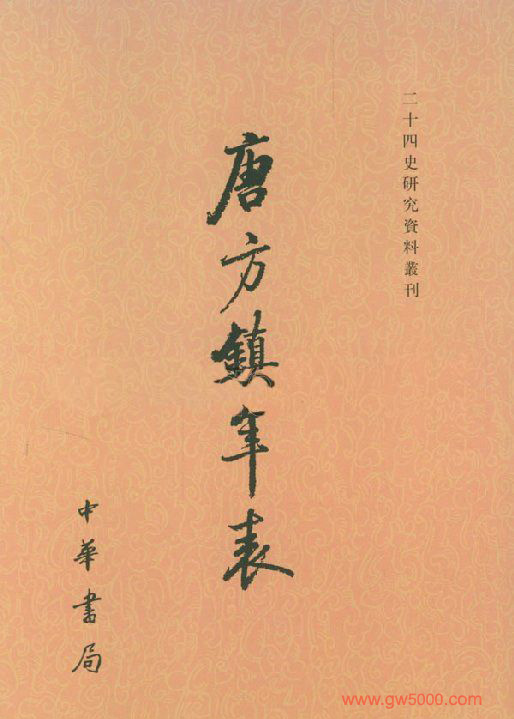 二十四史研究資料叢刊
唐方鎮年表
中華書局
www.gw5000.com